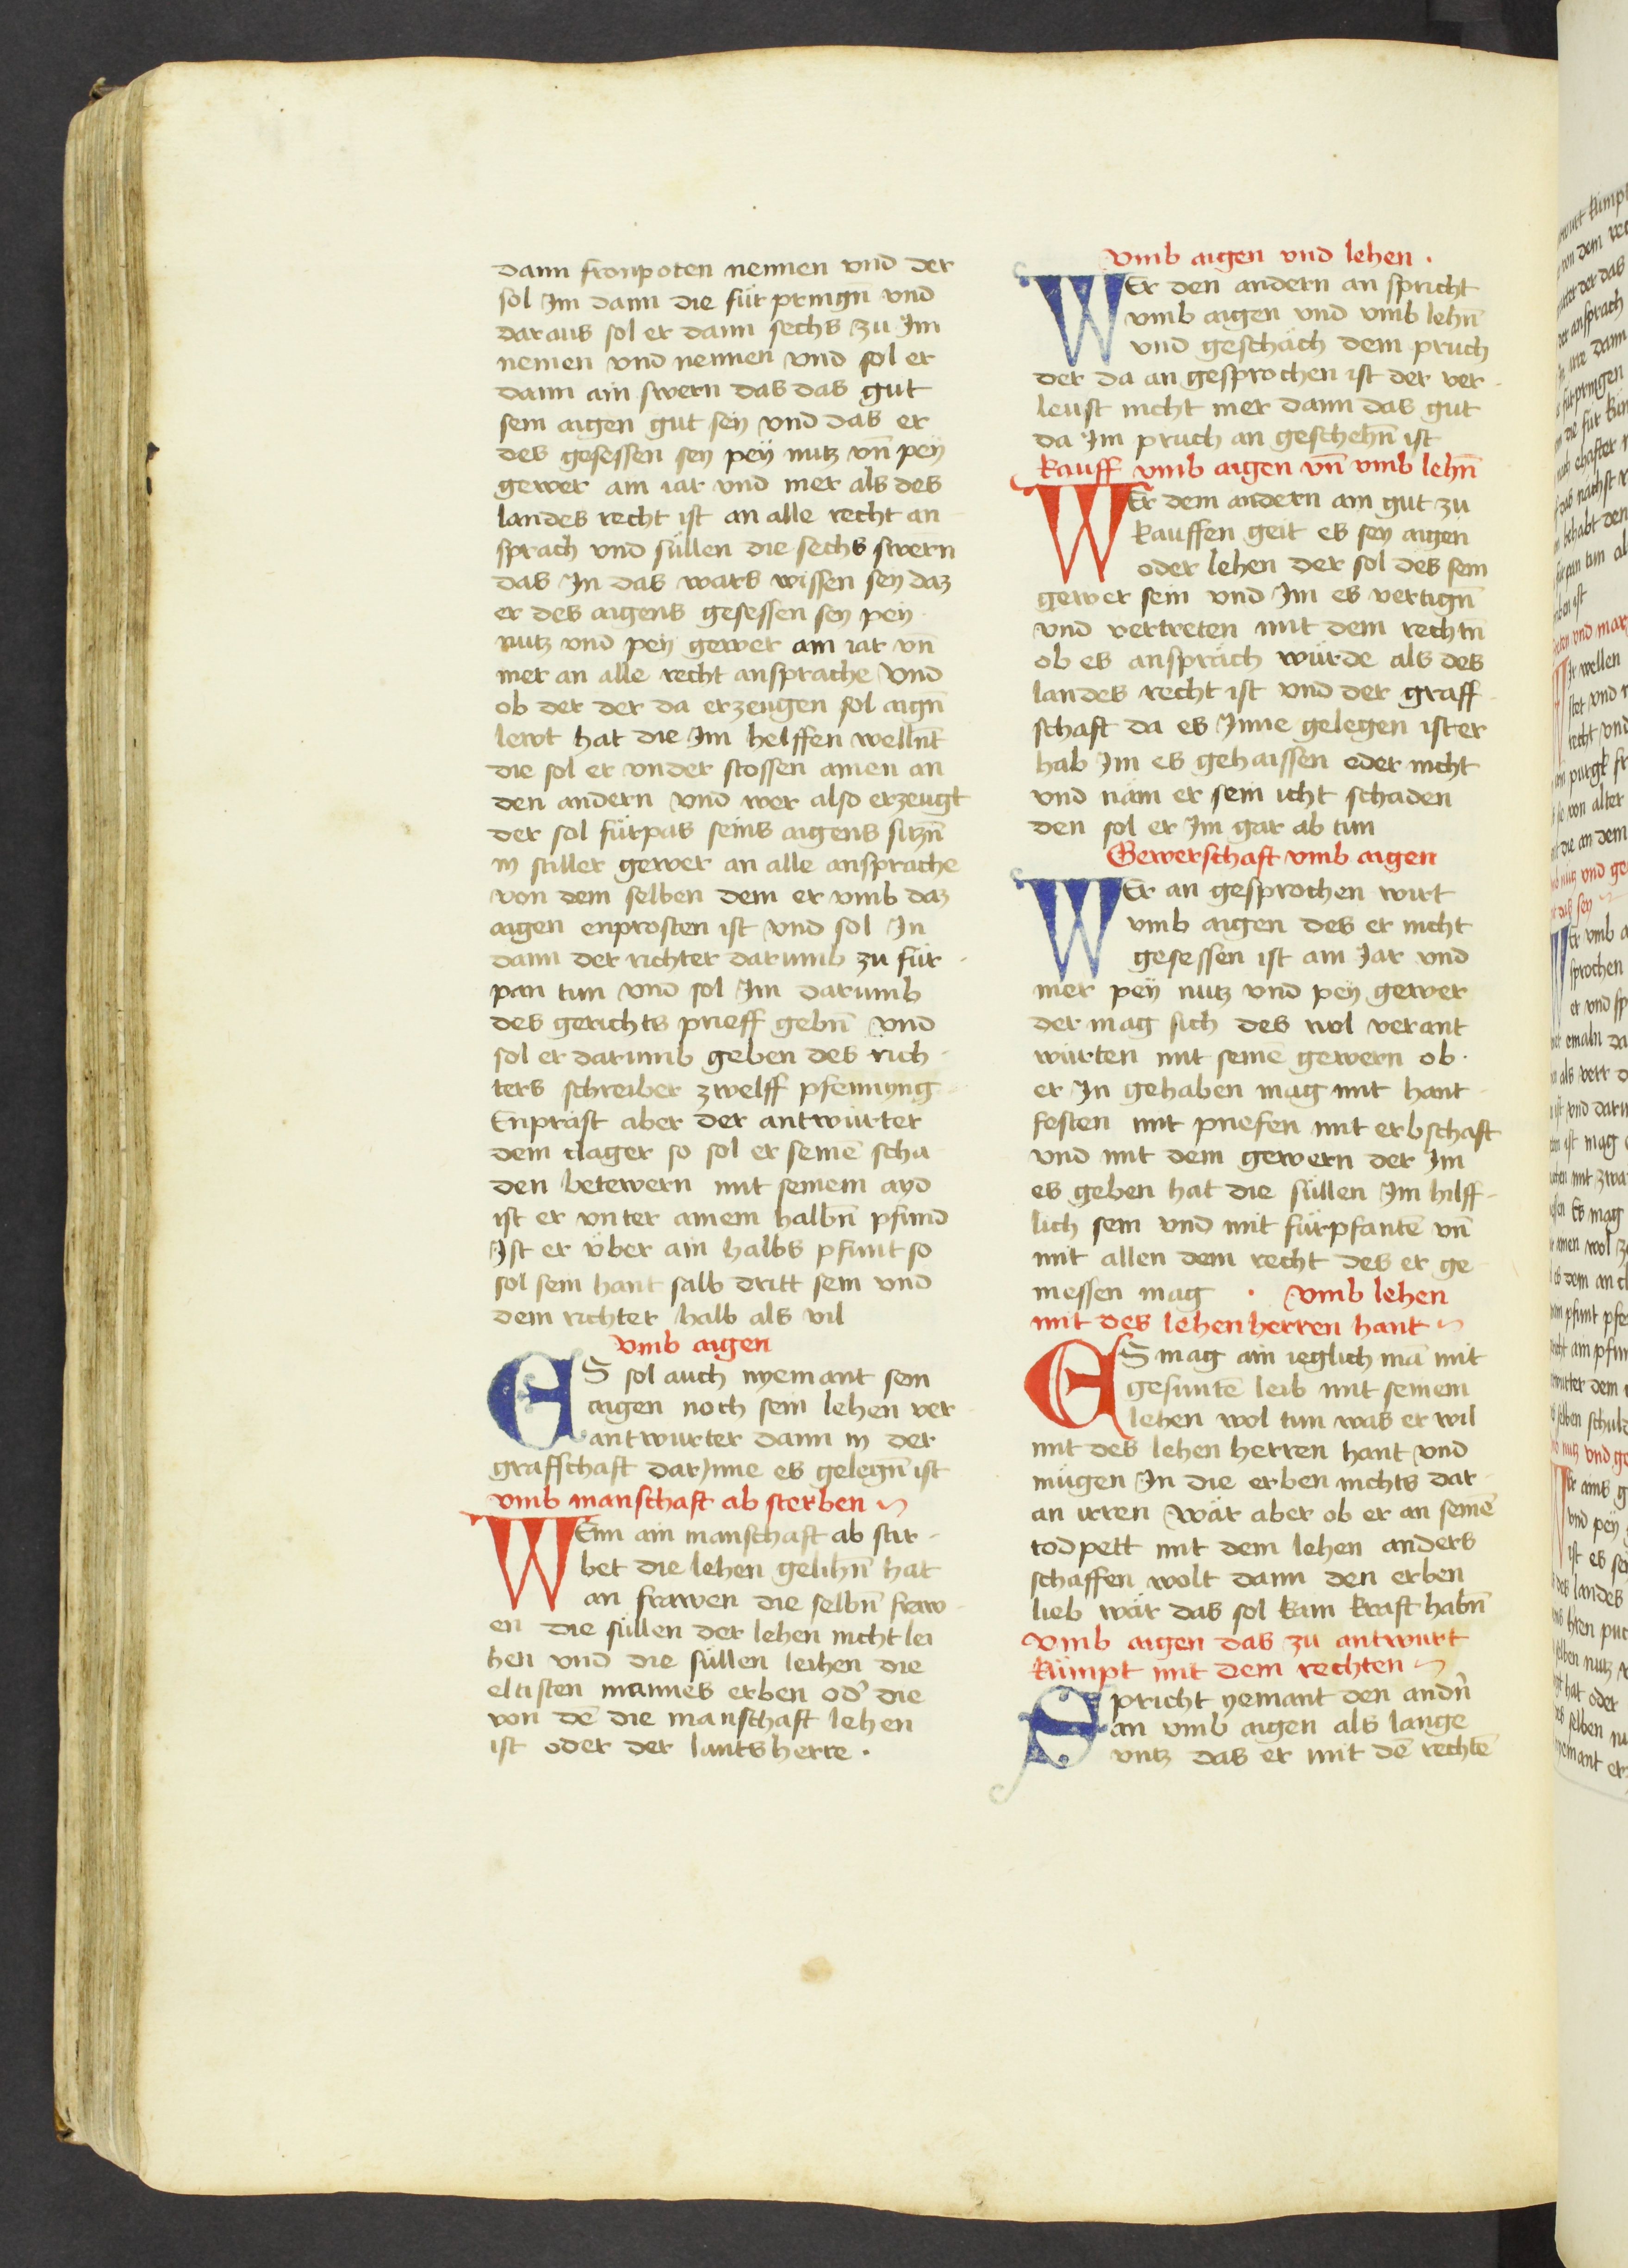 dann fronpoten nennen vnd der
sol Im dann die für pringn̄ vnd
daraus sol er dann sechs zu Im
nemen vnd nennen vnd sol er
dann ain swern das das gut
sein aigen gut seÿ vnd das er
des gesessen seÿ peÿ nutz vn̄ peÿ
gewer ain iar vnd mer als des
landes recht ist an alle recht an
sprach vnd süllen die sechs swern
das In das wars wissen seÿ daz
er des aigens gesessen seÿ peÿ
nutz vnd peÿ gewer ain iar vn̄
mer an alle recht ansprache vnd
ob der der da erzeugen sol aign̄
lewt hat die Im helffen wellnt̄
die sol er vnder stossen ainen an
den andern vnd wer also erzeugt
der sol fürpas seins aigens sitzn̄
in stiller gewer an alle ansprache
von dem selben dem er vmb daz
aigen enprosten ist vnd sol In
dann der richter darumb zu für
pan tun vnd sol Im darumb
des gerichts prieff gebn̄ vnd
sol er darumb geben des rich
ters schreiber zwelff pfennÿng
Enpräst aber der antwürter
dem clager so sol er seinē scha
den betewern mit seinem ayd
ist er vnter ainem halbn̄ pfund
Ist er über ain halbs pfunt so
sol sein hant salb dritt sein vnd
dem richter halb als vil
vmb aigen
ES sol auch nyemant sein
aigen noch sein lehen ver
antwurter dann in der
graffschaft darJnne es gelegn̄ ist
vmb manschaft ab sterben
WEnn ain manschaft ab stir
bet die lehen gelihn̄ hat
an frawen die selbn̄ fraw
en die süllen der lehen nicht lei
hen vnd die süllen leihen die
eltisten mannes erben od' die
von dē die manschaft lehen
ist oder der lantsherre .
vmb aigen vnd lehen .
WEr den andern an spricht
vmb aigen vnd vmb lehn̄
vnd geschäch dem pruch
der da an gesprochen ist der ver
leust nicht mer dann das gut
da Im pruch an geschehn̄ ist
kauff vmb aigen vn̄ vmb lehn̄
WEr dem andern ain gut zu
kauffen geit es seÿ aigen
oder lehen der sol des sein
gewer sein vnd Im es vertign̄
vnd vertreten mit dem rechtn̄
ob es anspräch würde als des
landes recht ist vnd der graff
schaft da es Inne gelegen ist er
hab Im es gehaissen oder nicht
vnd näm er sein icht schaden
den sol er Im gar ab tun
Gewerschaft vmb aigen
WEr an gesprochen wirt
vmb aigen des er nicht
gesessen ist ain Jar vnd
mer peÿ nutz vnd peÿ gewer
der mag sich des wol verant
würten mit seinē gewern ob
er In gehaben mag mit hant
festen mit priefen mit erbschaft
vnd mit dem gewern der Im
es geben hat die süllen Im hilff
lich sein vnd mit fürpfantē vn̄
mit allen dem recht des er ge
niessen mag . vmb lehen
mit des lehenherren hant
ES mag ain ieglich mā mit
gesuntē leib mit seinem
lehen wol tun was er wil
mit des lehen herren hant vnd
mügen In die erben nichts dar
an irren wär aber ob er an seinē
todpett mit dem lehen anders
schaffen wolt dann den erben
lieb wär das sol kain kraft habn̄
vmb aigen das zu antwurt
kümpt mit dem rechten
Spricht yemant den andn̄
an vmb aigen als lange
vntz das er mit dē rechtē